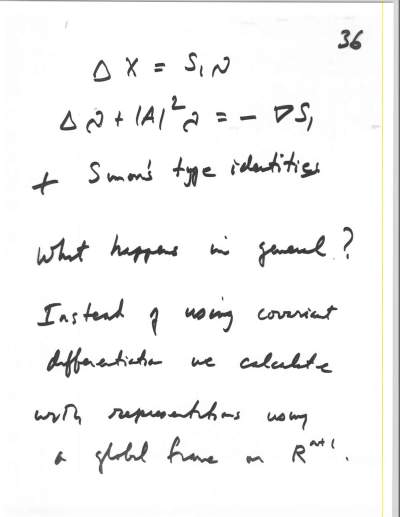 36
Δ X = S₁ ν
Δ ν + |A|² ν = − ∇S₁
+ Simon's type identities
What happens in general?
Instead of using covariant
differentiation we calculate
with representations using
a global frame on Rⁿ⁺¹.